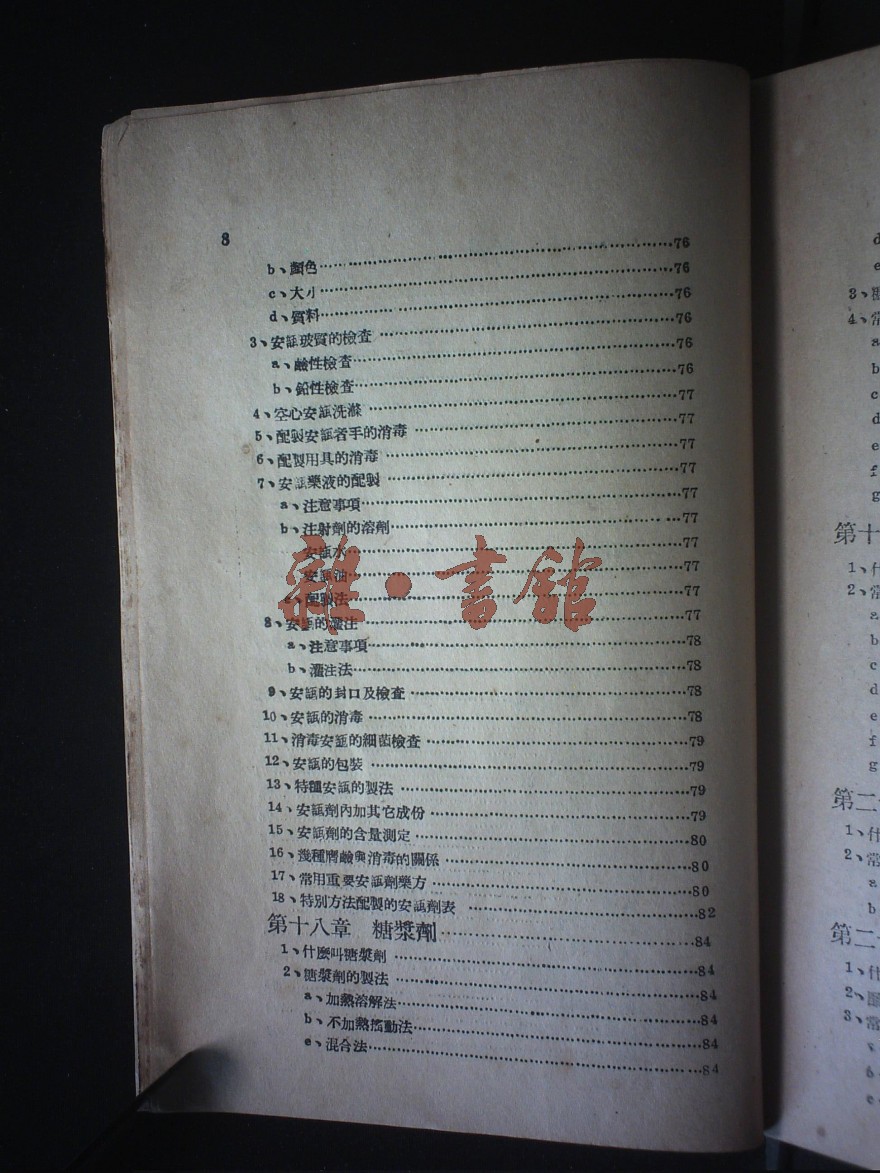 8
b、顏色……76
c、大小……76
d、質料……76
3、安瓿玻質的檢查……76
a、鹼性檢查……76
b、鉛性檢查……76
4、空心安瓿洗滌……77
5、配製安瓿者手的消毒……77
6、配製用具的消毒……77
7、安瓿藥液的配製……77
a、注意事項……77
b、注射劑的溶劑……77
安瓿水……77
安瓿油……77
c、配製法……77
8、安瓿的灌注……77
a、注意事項……78
b、灌注法……78
9、安瓿的封口及檢查……78
10、安瓿的消毒……78
11、消毒安瓿的細菌檢查……79
12、安瓿的包裝……79
13、特種安瓿的製法……79
14、安瓿劑內加其它成份……79
15、安瓿劑的含量測定……80
16、幾種膺鹼與消毒的關係……80
17、常用重要安瓿劑藥方……80
18、特別方法配製的安瓿劑表……82
第十八章 糖漿劑……84
1、什麼叫糖漿劑……84
2、糖漿劑的製法……84
a、加熱溶解法……84
b、不加熱搖動法……84
c、混合法……84
雜·書館
d
e
3、
4、常
a
b
c
d
e
f
g
第十
1、什
2、常
a
b
c
d
e
f
g
第二
1、什
2、常
a
b
第二
1、什
2、
3、常
b
c